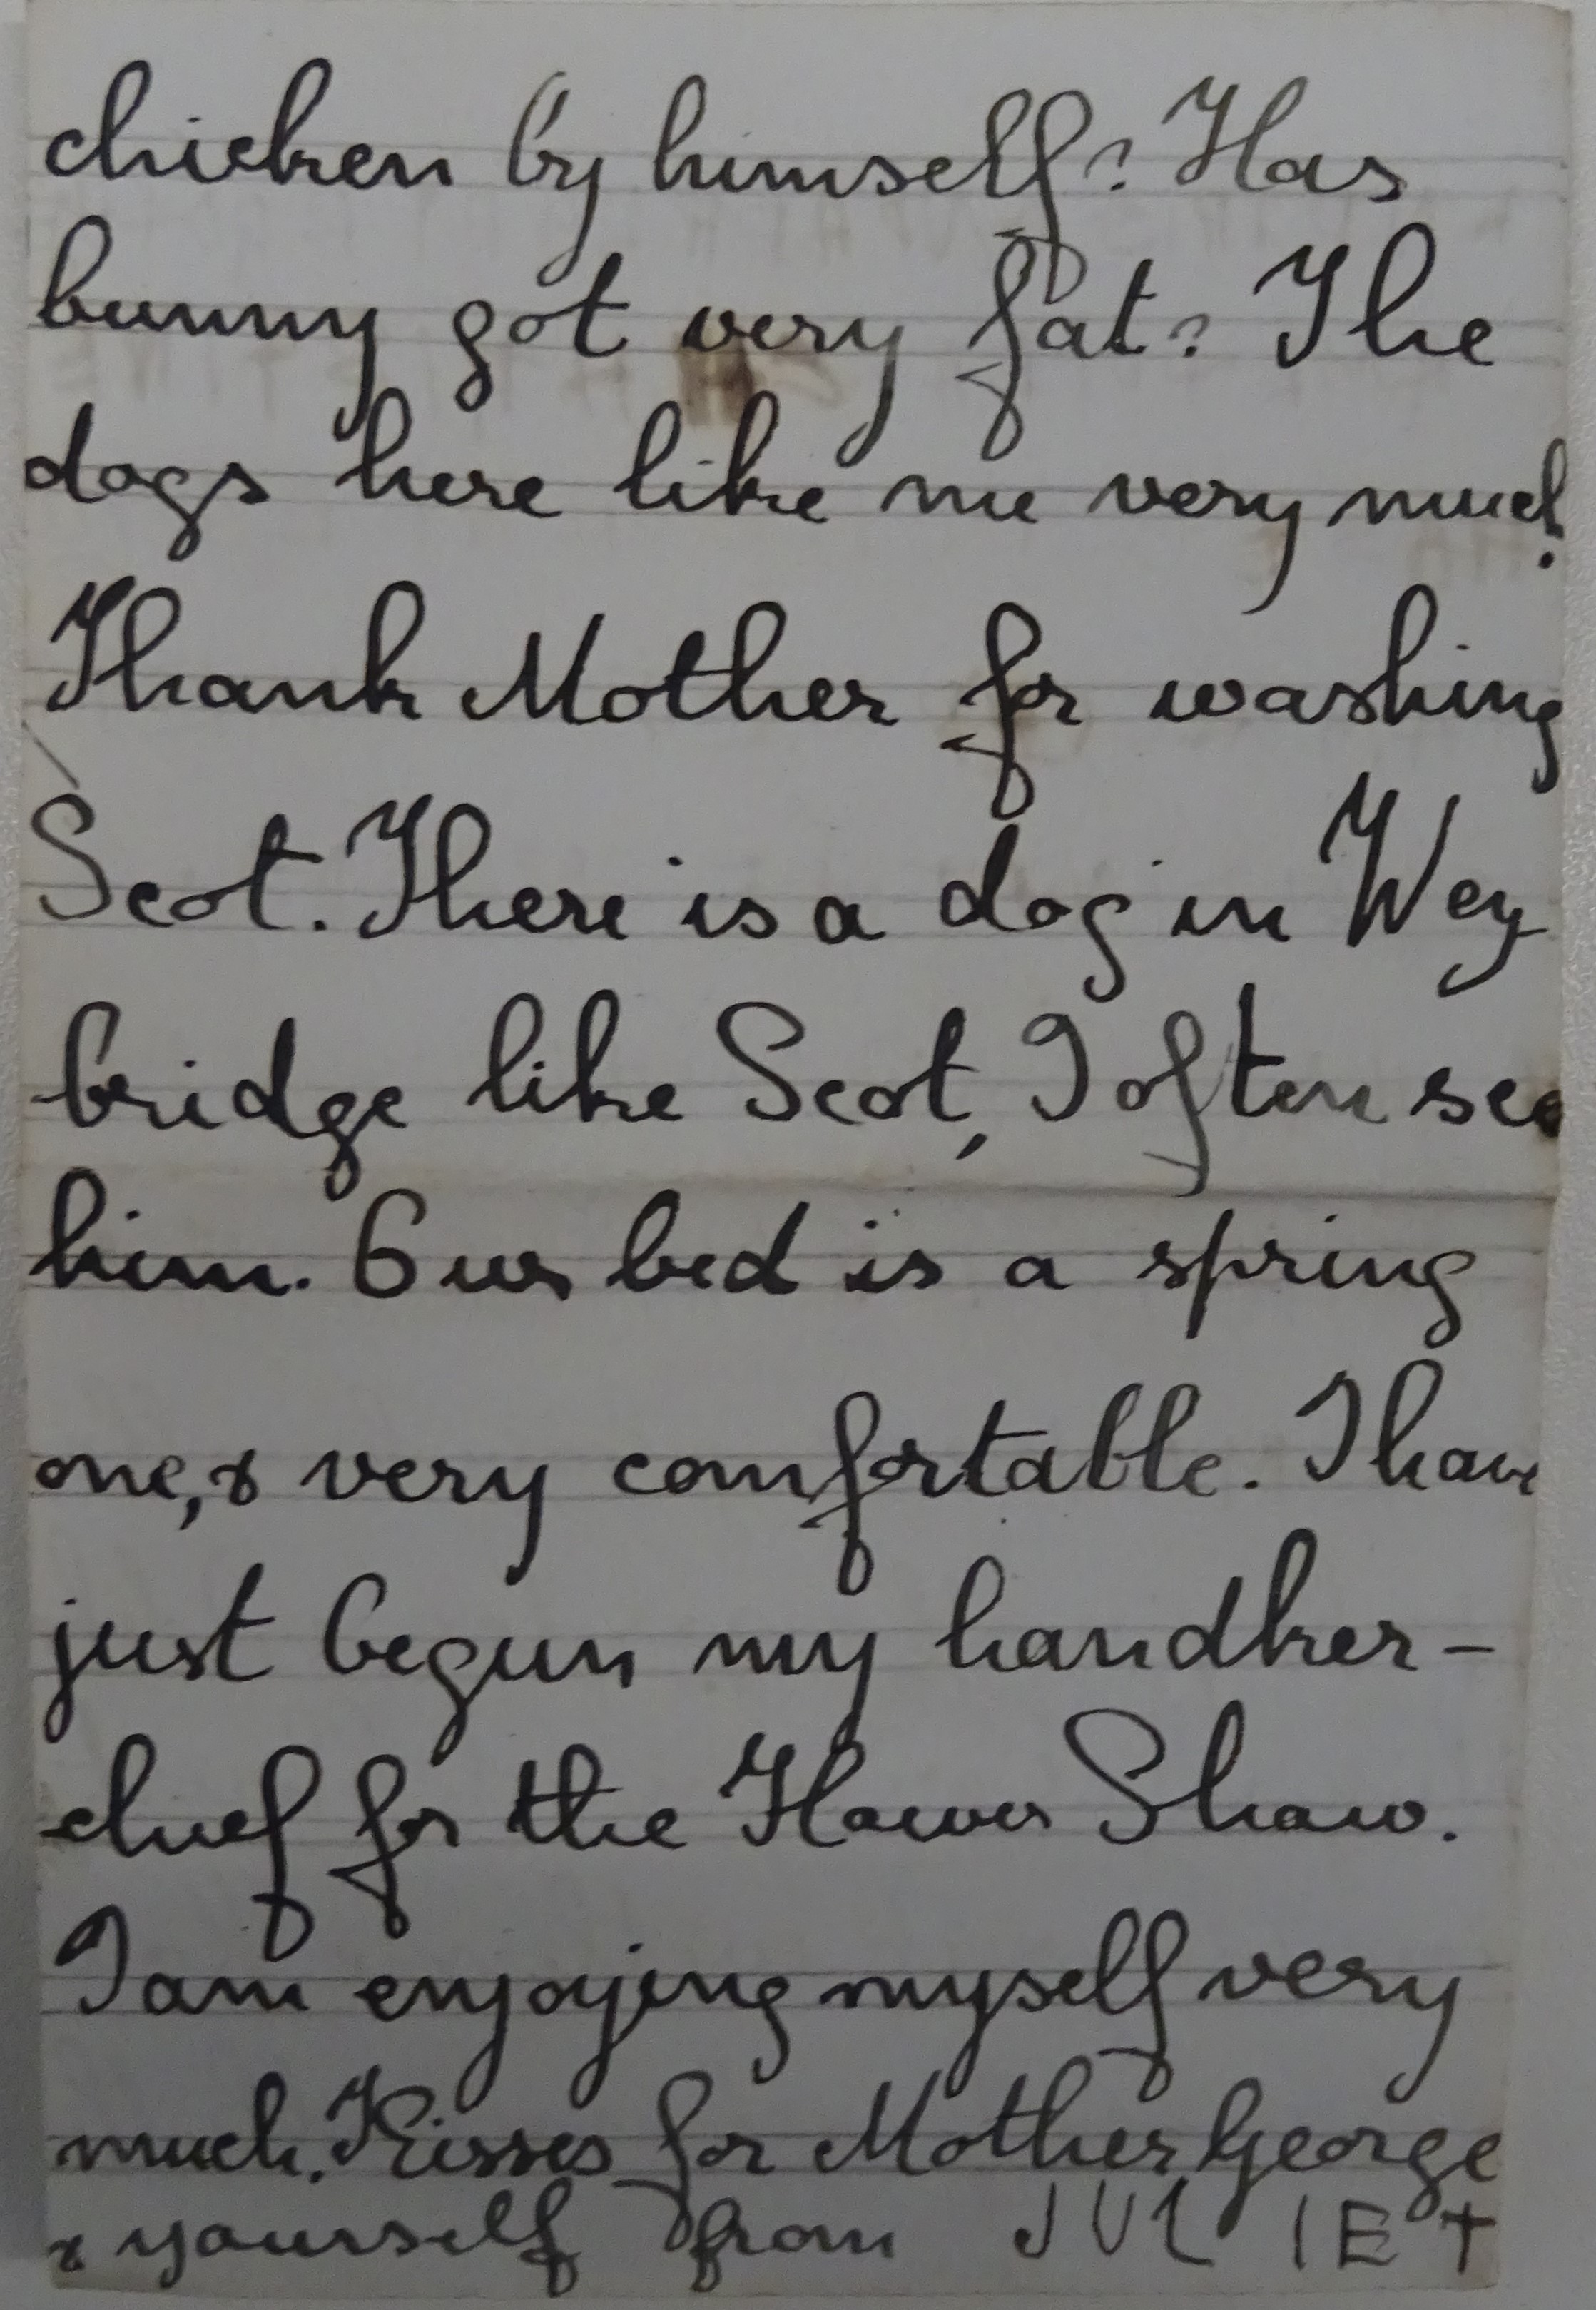 chicken by himself? Has
bunny got very fat? The
dogs here like me very much.
Thank Mother for washing
Scot. There is a dog in Wey-
bridge like Scot, I often see
him. Our bed is a spring
one, & very comfortable. I have
just begun my handker-
chief for the Flower Show.
I am enjoying myself very
much. Kisses for Mother George
& yourself from JULIET